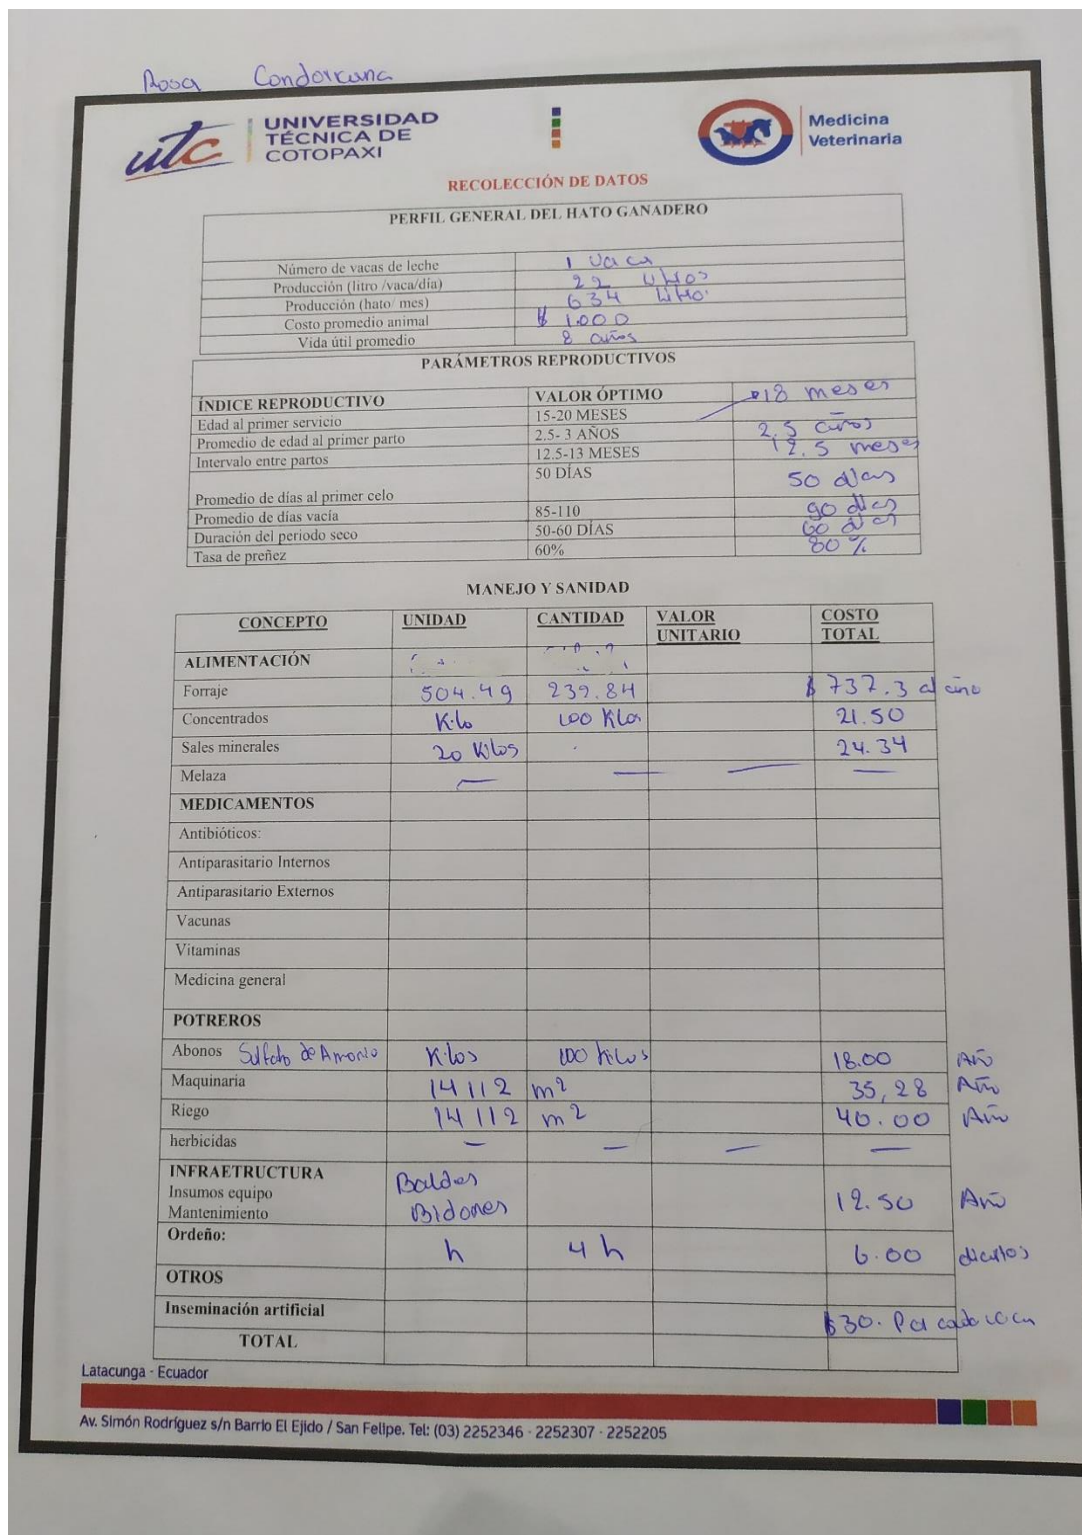 Rosa Condorcana
utc UNIVERSIDAD TÉCNICA DE COTOPAXI
Medicina Veterinaria
RECOLECCIÓN DE DATOS
PERFIL GENERAL DEL HATO GANADERO
Número de vacas de leche 1 vaca
Producción (litro /vaca/día) 22 litros
Producción (hato/ mes) 634 litro
Costo promedio animal $ 1.000
Vida útil promedio 8 años
PARÁMETROS REPRODUCTIVOS
ÍNDICE REPRODUCTIVO VALOR ÓPTIMO
Edad al primer servicio 15-20 MESES 18 meses
Promedio de edad al primer parto 2.5- 3 AÑOS 2.5 años
Intervalo entre partos 12.5-13 MESES 12.5 meses
Promedio de días al primer celo 50 DÍAS 50 días
Promedio de días vacía 85-110 90 días
Duración del periodo seco 50-60 DÍAS 60 días
Tasa de preñez 60% 80 %
MANEJO Y SANIDAD
CONCEPTO UNIDAD CANTIDAD VALOR UNITARIO COSTO TOTAL
ALIMENTACIÓN
Forraje 504.49 239.84 $ 737.3 al año
Concentrados Kilo 100 Kilos 21.50
Sales minerales 20 Kilos 24.34
Melaza — — — —
MEDICAMENTOS
Antibióticos:
Antiparasitario Internos
Antiparasitario Externos
Vacunas
Vitaminas
Medicina general
POTREROS
Abonos Sulfato de Amonio Kilos 100 kilos 18.00 Año
Maquinaria 14112 m² 35,28 Año
Riego 14112 m² 40.00 Año
herbicidas — — — —
INFRAETRUCTURA Baldes
Insumos equipo
Mantenimiento Bidones 12.50 Año
Ordeño: h 4 h 6.00 diarios
OTROS
Inseminación artificial $30. Por cada vaca
TOTAL
Latacunga - Ecuador
Av. Simón Rodríguez s/n Barrio El Ejido / San Felipe. Tel: (03) 2252346 - 2252307 - 2252205